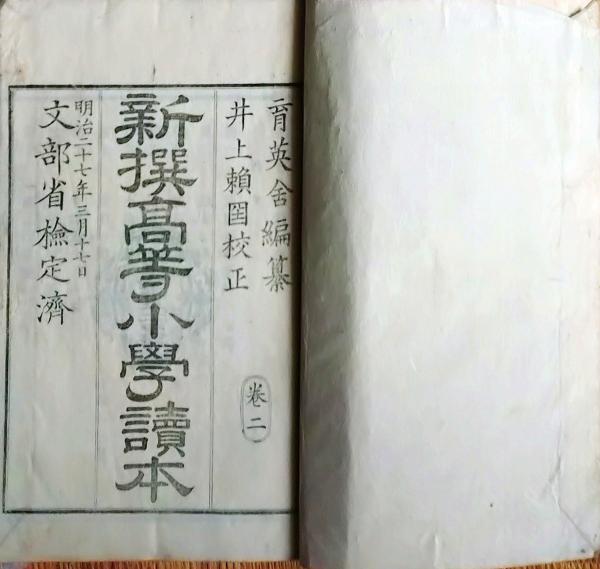 育英舍編纂
井上賴囶校正
卷二
新撰高等小學讀本
明治二十七年三月十七日
文部省檢定濟